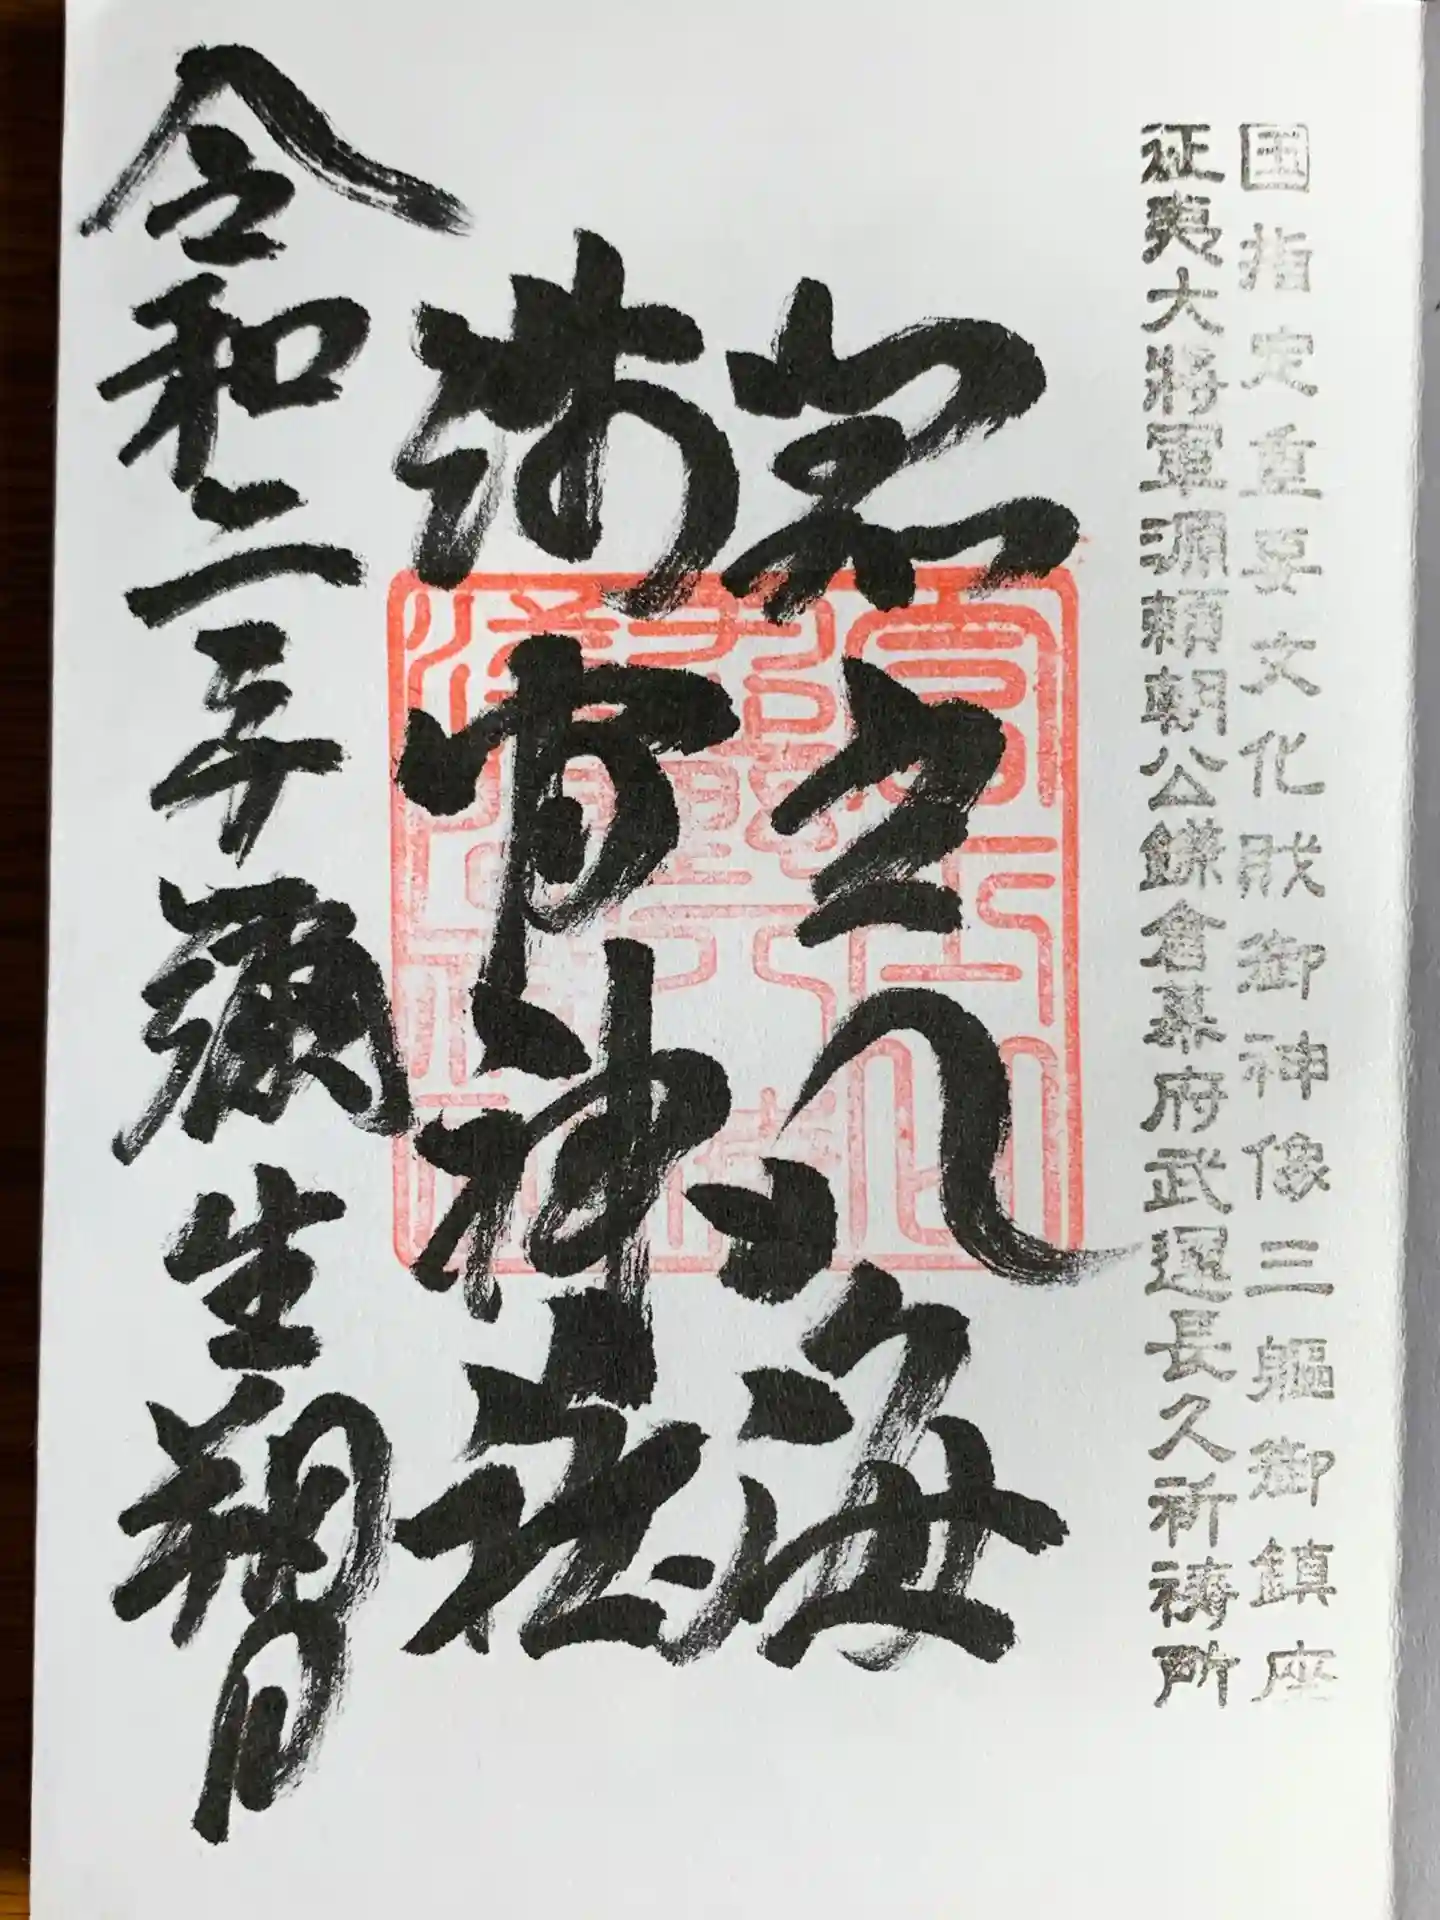 国指定重要文化財御神像三躯御鎮座
征夷大將軍源頼朝公鎌倉幕府武運長久祈祷所
忍野八海
浅間神社
令和二年彌生朔日